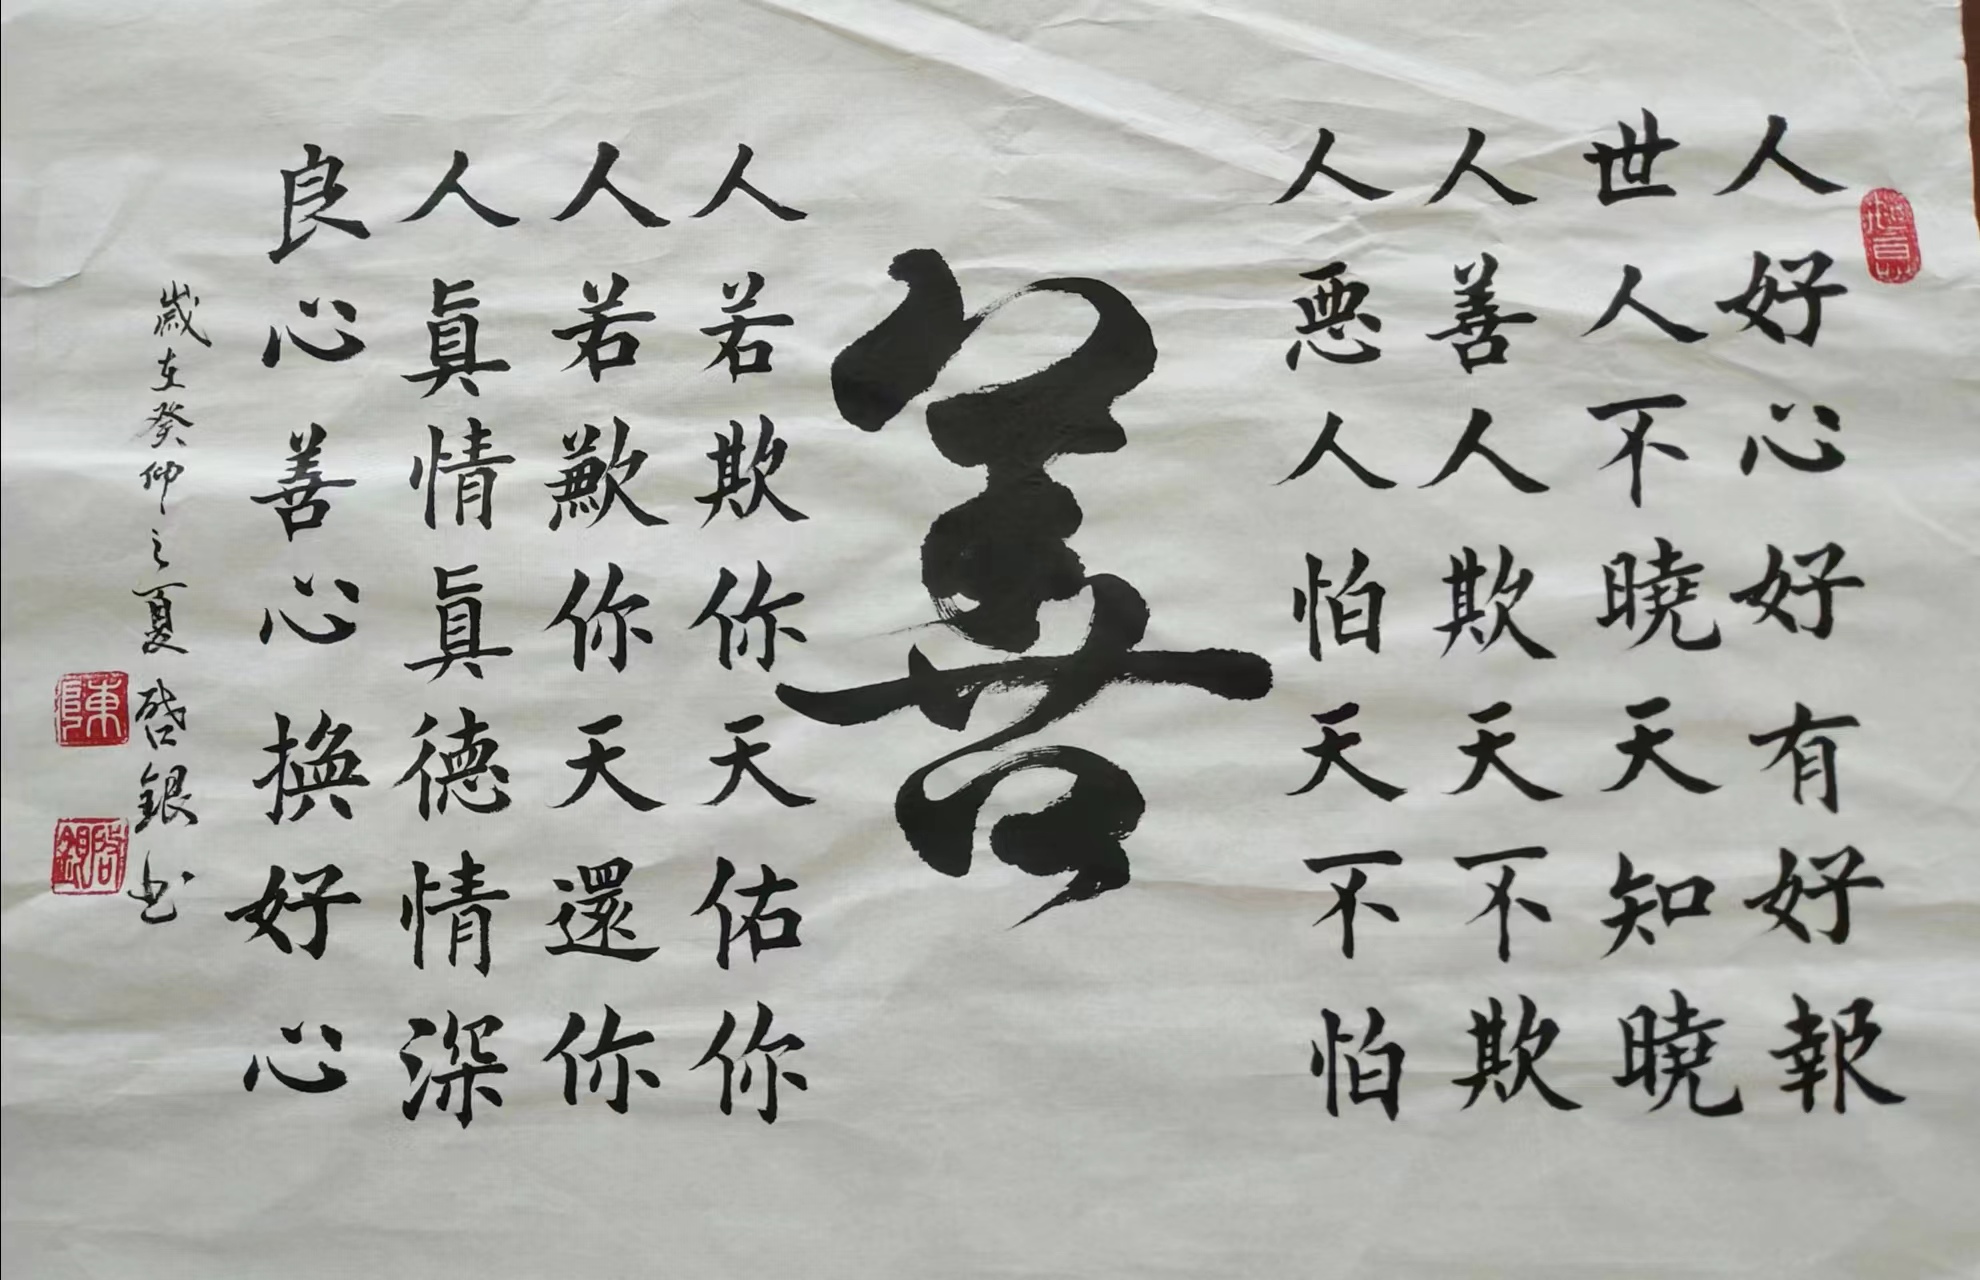 人好心好有好報
世人不曉天知曉
人善人欺天不欺
人惡人怕天不怕
善
人若欺你天佑你
人若歉你天還你
人眞情眞德情深
良心善心換好心
歲在癸卯之夏 啓銀书
陳
啓銀